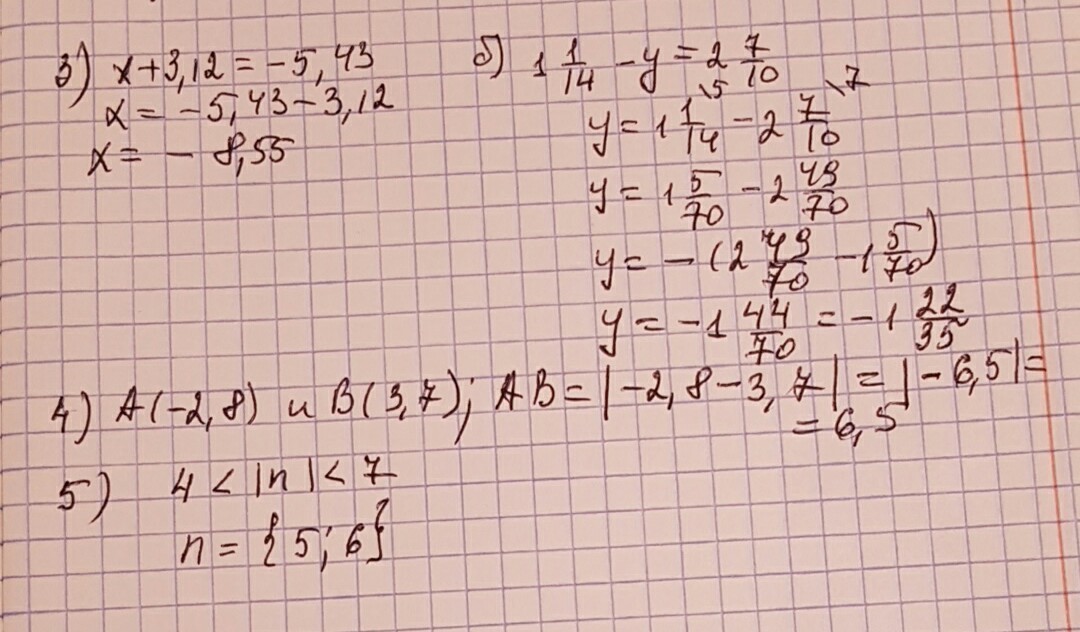 3) x+3,12=-5,43
x= -5,43-3,12
x= - 8,55
б) 1 1/14 - y = 2 7/10
y = 1 1/14 \5 - 2 7/10 \7
y = 1 5/70 - 2 49/70
y = -(2 49/70 - 1 5/70)
y = -1 44/70 = -1 22/35
4) A(-2,8) и B(3,7); AB=|-2,8-3,7|=|-6,5|=
=6,5
5) 4<|n|<7
n={5;6}